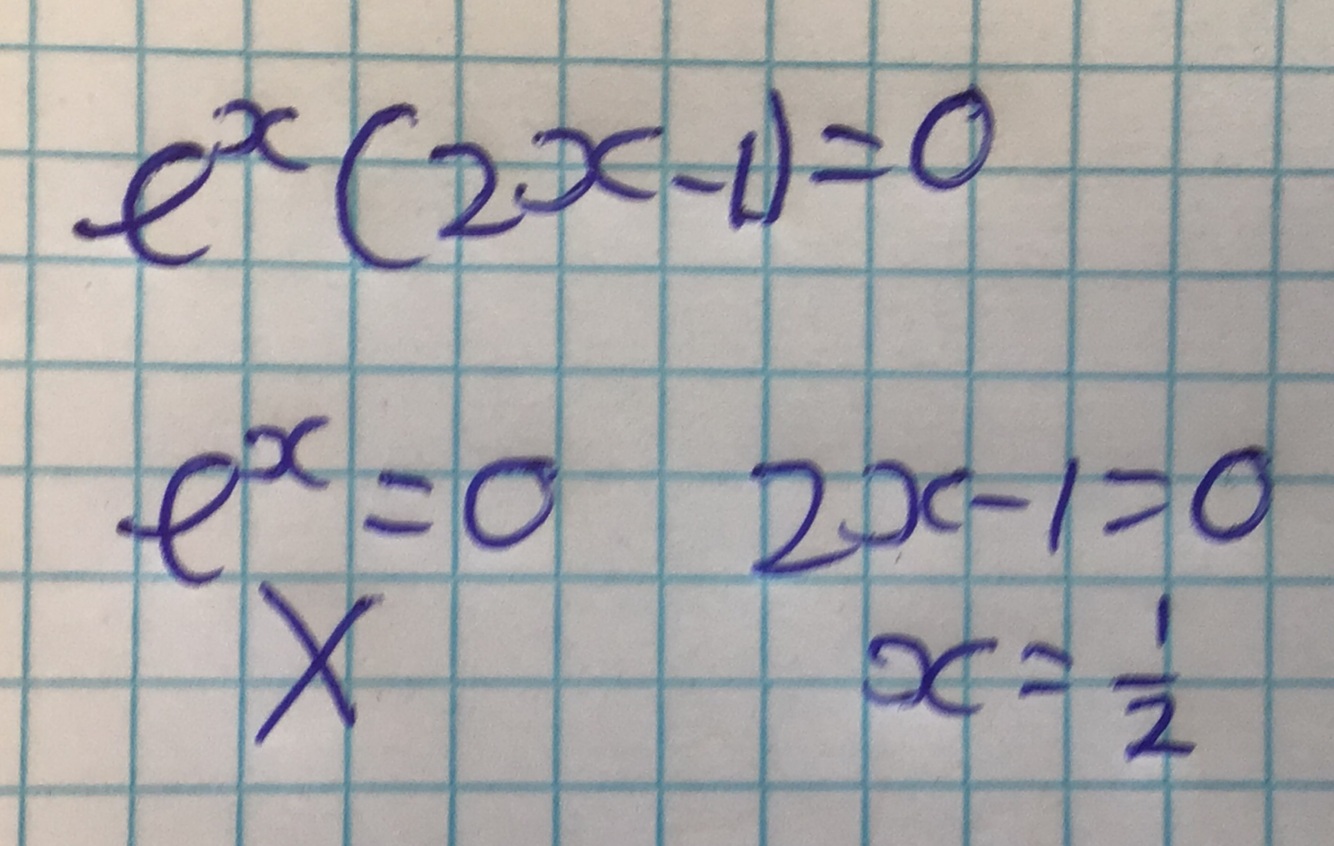 eˣ(2x-1)=0
eˣ=0 2x-1=0
X x=1/2